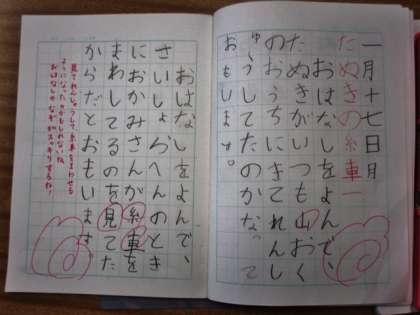 一月十七日月
たぬきの糸車
おはなしをよんで、
たぬきがいつも山おく
のおうちにきてれんし
ゅうしてたのかな。って
おもいます。
おはなしをよんで、
さいしょらへんのとき
におかみさんが糸車を
まわしてるのを見てた
からだとおもいます。
見てれんしゅうして、糸車をまわせる
ようになったのかもしれないね。
おはなしのなぞがスッキリするね!